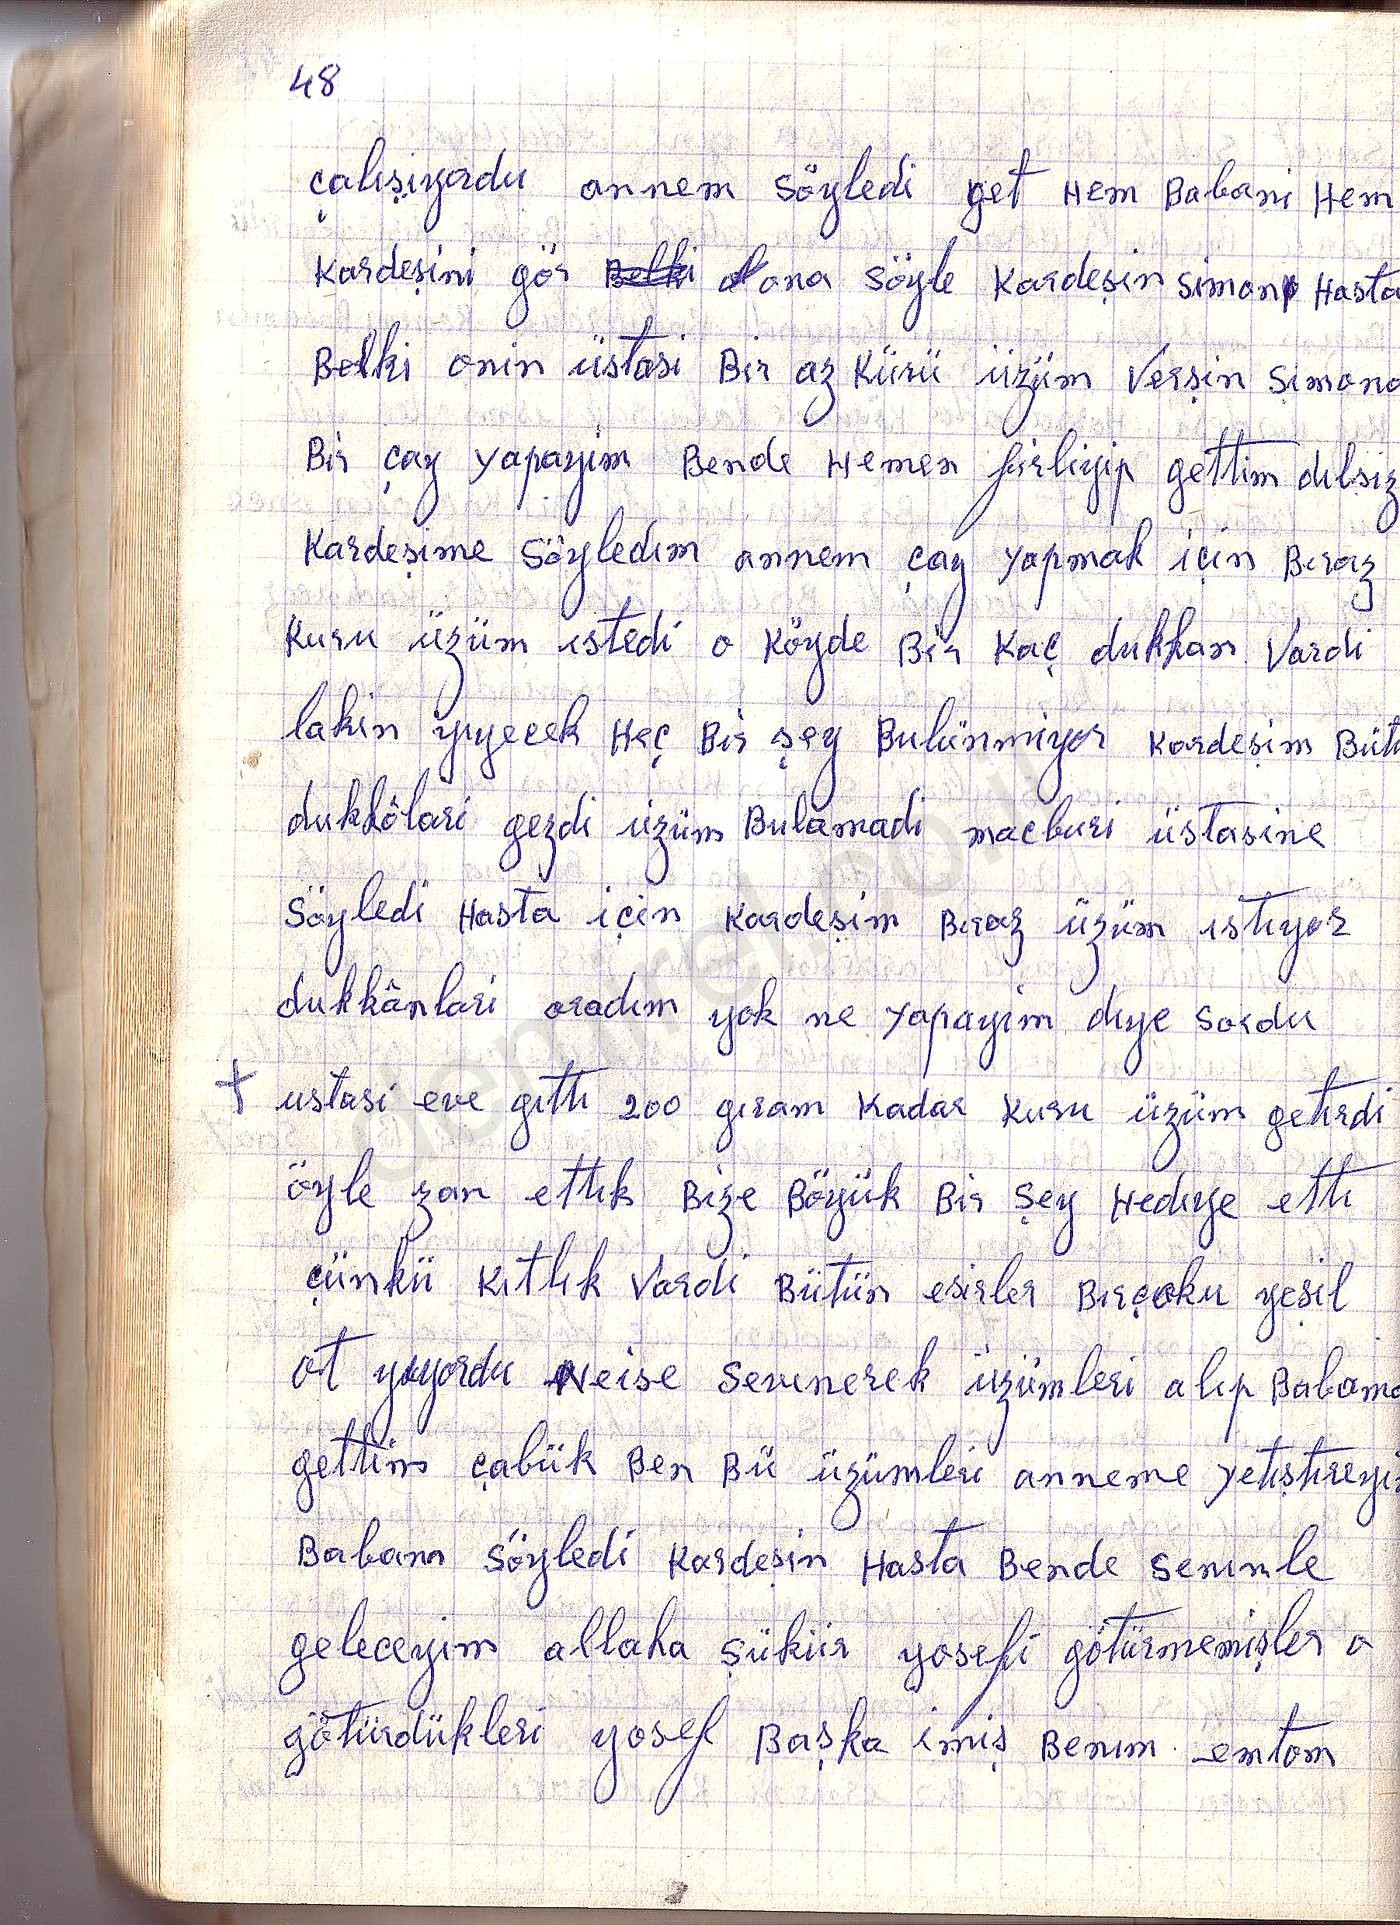 48
çalışıyordu annem Söyledi get Hem Babani Hem
Kardeşini gör Belki ona Söyle Kardeşin Simon Hasta
Belki onin üstasi Bir az Kürü üzüm Verşin Simona
Bir çay yapayim Bende Hemen firliyip gettim dılsiz
Kardeşime Söyledım annem çay yapmak için Bıraz
Kuru üzüm ıstedi o Köyde Bir Kaç dukkan Vardi
lakin yıyecek Heç Bir şey Bulünmiyor Kardeşim Büt
dukkôlari gezdi üzüm Bulamadi macburi üstasine
Söyledi Hasta için Kardeşim Bıraz üzüm ıstıyor
dukkânlari aradım yok ne yapayim dıye Sordu
+ ustasi eve gıttı 200 gıram Kadar Kuru üzüm getırdi
öyle zan ettık Bize Böyük Bir Şey Hedıye ettı
çünkü Kıtlık Vardi Bütün esirler Bırçoku yeşil
ot yıyordu Neise Sevınerek üzümleri alıp Babama
gettim çabük Ben Bü üzümleri anneme yetıştıreyi
Babam Söyledi Kardeşin Hasta Bende Senınle
geleceyim allaha Şükür yosefi götürmemişler o
götürdükleri yosef Başka imiş Benım emtom
depirel.co.il